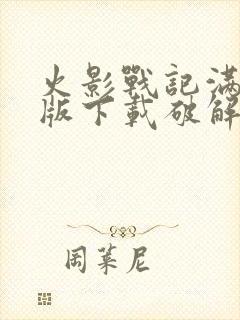 火影戰記滿
版下載破解
周葉尼